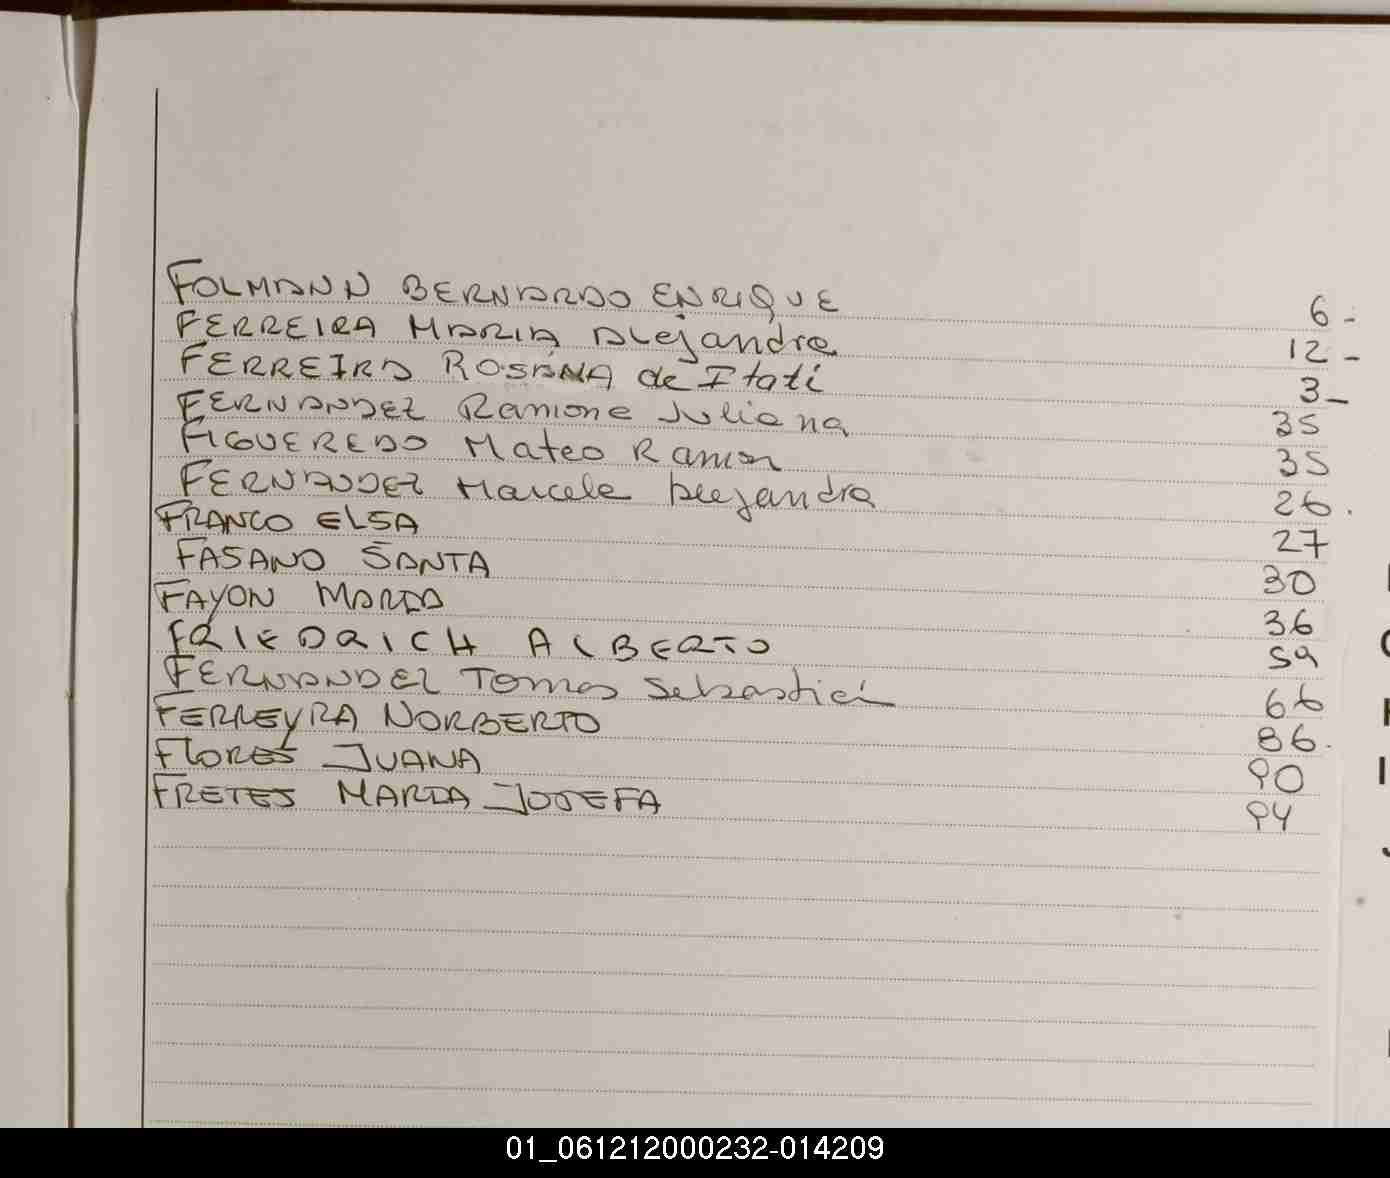 FOLMANN BERNARDO ENRIQUE 6 -
FERREIRA MARIA Alejandra 12 -
FERREIRA ROSANA de Itati 3 -
FERNANDEZ Ramona Juliana 35
FIGUEREDO Mateo Ramon 35
FERNANDEZ Marcela Alejandra 26 .
FRANCO ELSA 27
FASANO SANTA 30
FAYON MARIA 36
FRIEDRICH ALBERTO 59
FERNANDEZ Tomas Sebastián 66
FERREYRA NORBERTO 86 .
FLORES JUANA 90
FRETES MARIA JOSEFA 94
01_061212000232-014209